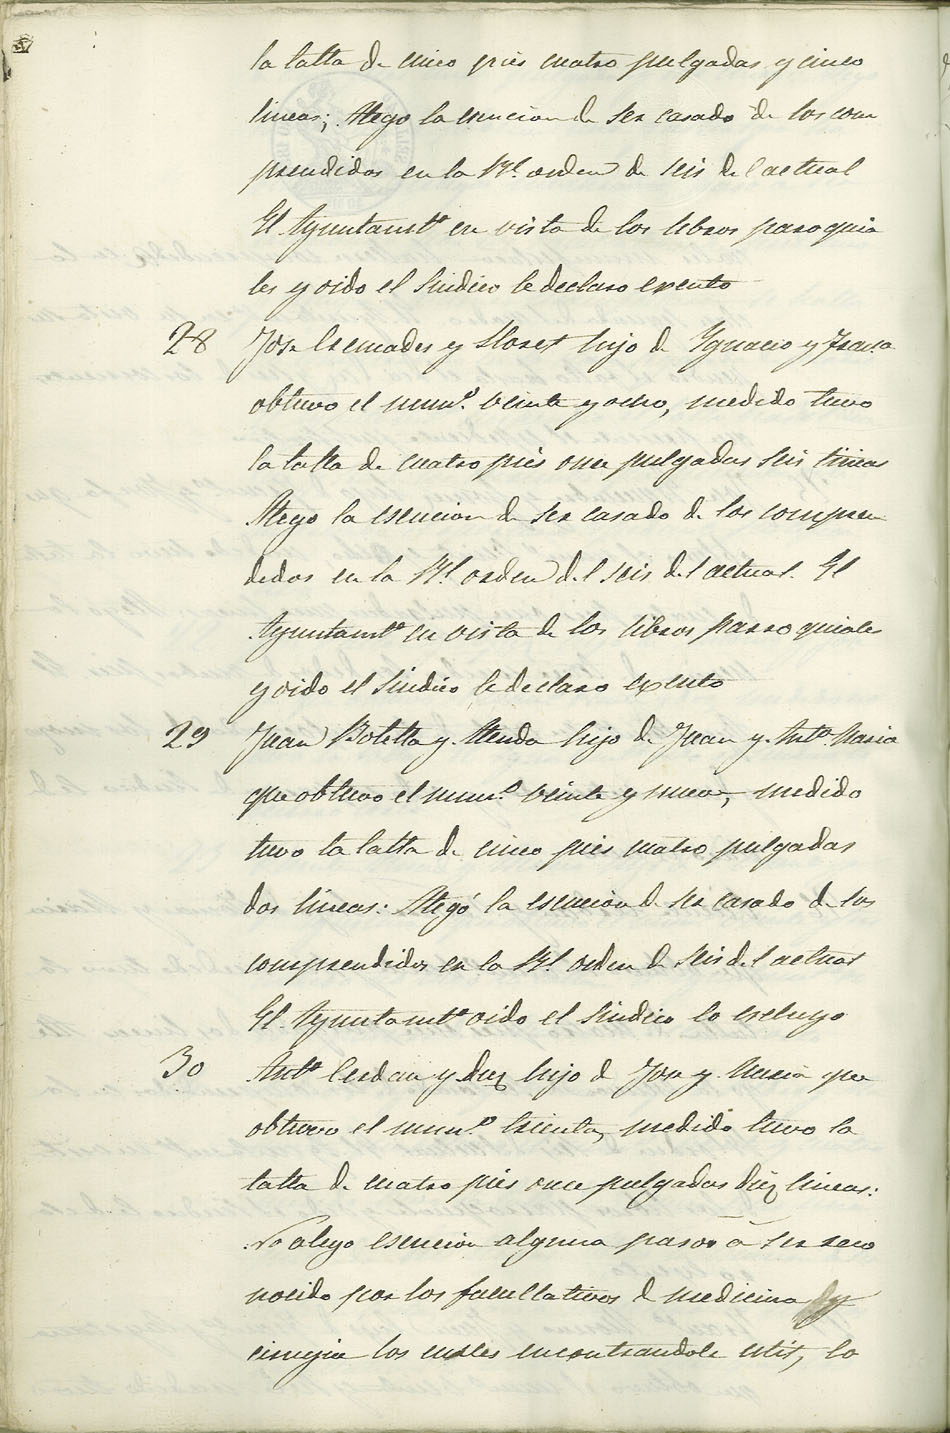 la talla de cinco pies cuatro pulgadas y cinco
lineas; Alego la esencion de ser casado de los com
prendidos en la Rl. orden de seis del actual
El Ayuntamto en vista de los libros parroquia
les y oido el Sindico le declaro exento
28 José Cremades y Lloret hijo de Ygnacio y Franca
obtuvo el numo. veinte y ocho, medido tuvo
la talla de cuatro pies once pulgadas seis lineas
Alego la esencion de ser casado de los compren
didos en la Rl. orden del seis del actual. El
Ayuntamto en vista de los libros parroquiales
y oido el Sindico le declaro exento
29 Juan Botella y hijo de Juan y Anta. Maria
que obtuvo el numo. veinte y nueve, medido
tuvo la talla de cinco pies cuatro pulgadas
dos lineas: Alegó la esencion de ser casado de los
comprendidos en la Rl. orden de seis del actual
El Ayuntamto oido el Sindico lo escluyo
30 Anto Cerdan y diez hijo de José y Maria que
obtuvo el numo. treinta, medido tuvo la
talla de cuatro pies once pulgadas diez lineas:
No alego esencion alguna paso à ser reco
nocido por los facultativos de medicina y
cirugia los cuales encontrandole util, lo